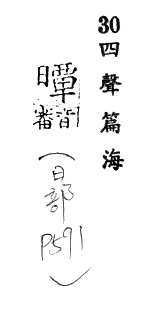 30四聲篇海
音
(日部 P591)